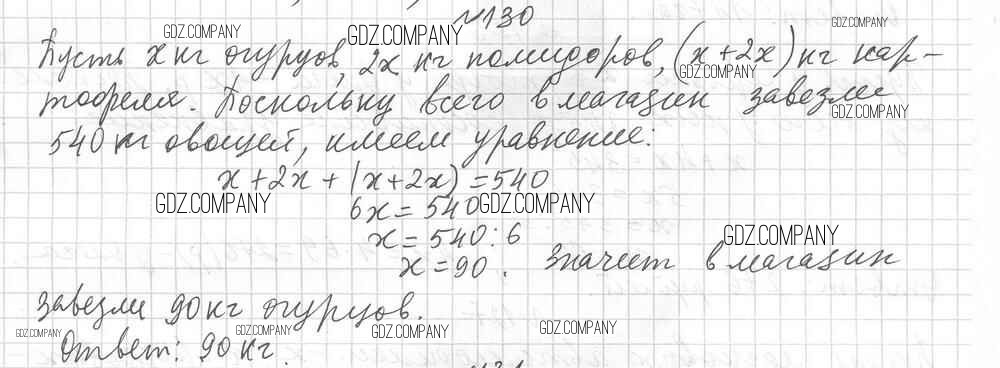 №130
Пусть х кг огурцов, 2х кг помидоров, (х+2х) кг кар-
тофеля. Поскольку всего в магазин завезли
540 кг овощей, имеем уравнение:
х+2х+(х+2х)=540
6х=540
х=540:6
х=90. Значит в магазин
завезли 90 кг огурцов.
Ответ: 90 кг.
GDZ.COMPANY
GDZ.COMPANY
GDZ.COMPANY
GDZ.COMPANY
GDZ.COMPANY
GDZ.COMPANY
GDZ.COMPANY
GDZ.COMPANY
GDZ.COMPANY
GDZ.COMPANY
GDZ.COMPANY
GDZ.COMPANY